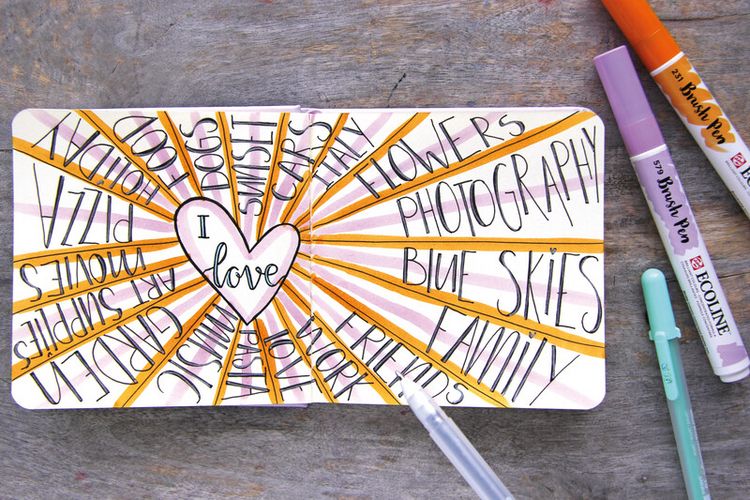 I
love
FOOD
DOGS
ITALY
FLOWERS
PHOTOGRAPHY
BLUE SKIES
FAMILY
FRIENDS
WORK
LOVE
PASTA
MUSIC
GARDEN
ART SUPPLIES
MOVIES
PIZZA
HOLIDAY
231 Brush Pen
579 Brush Pen
ECOLINE